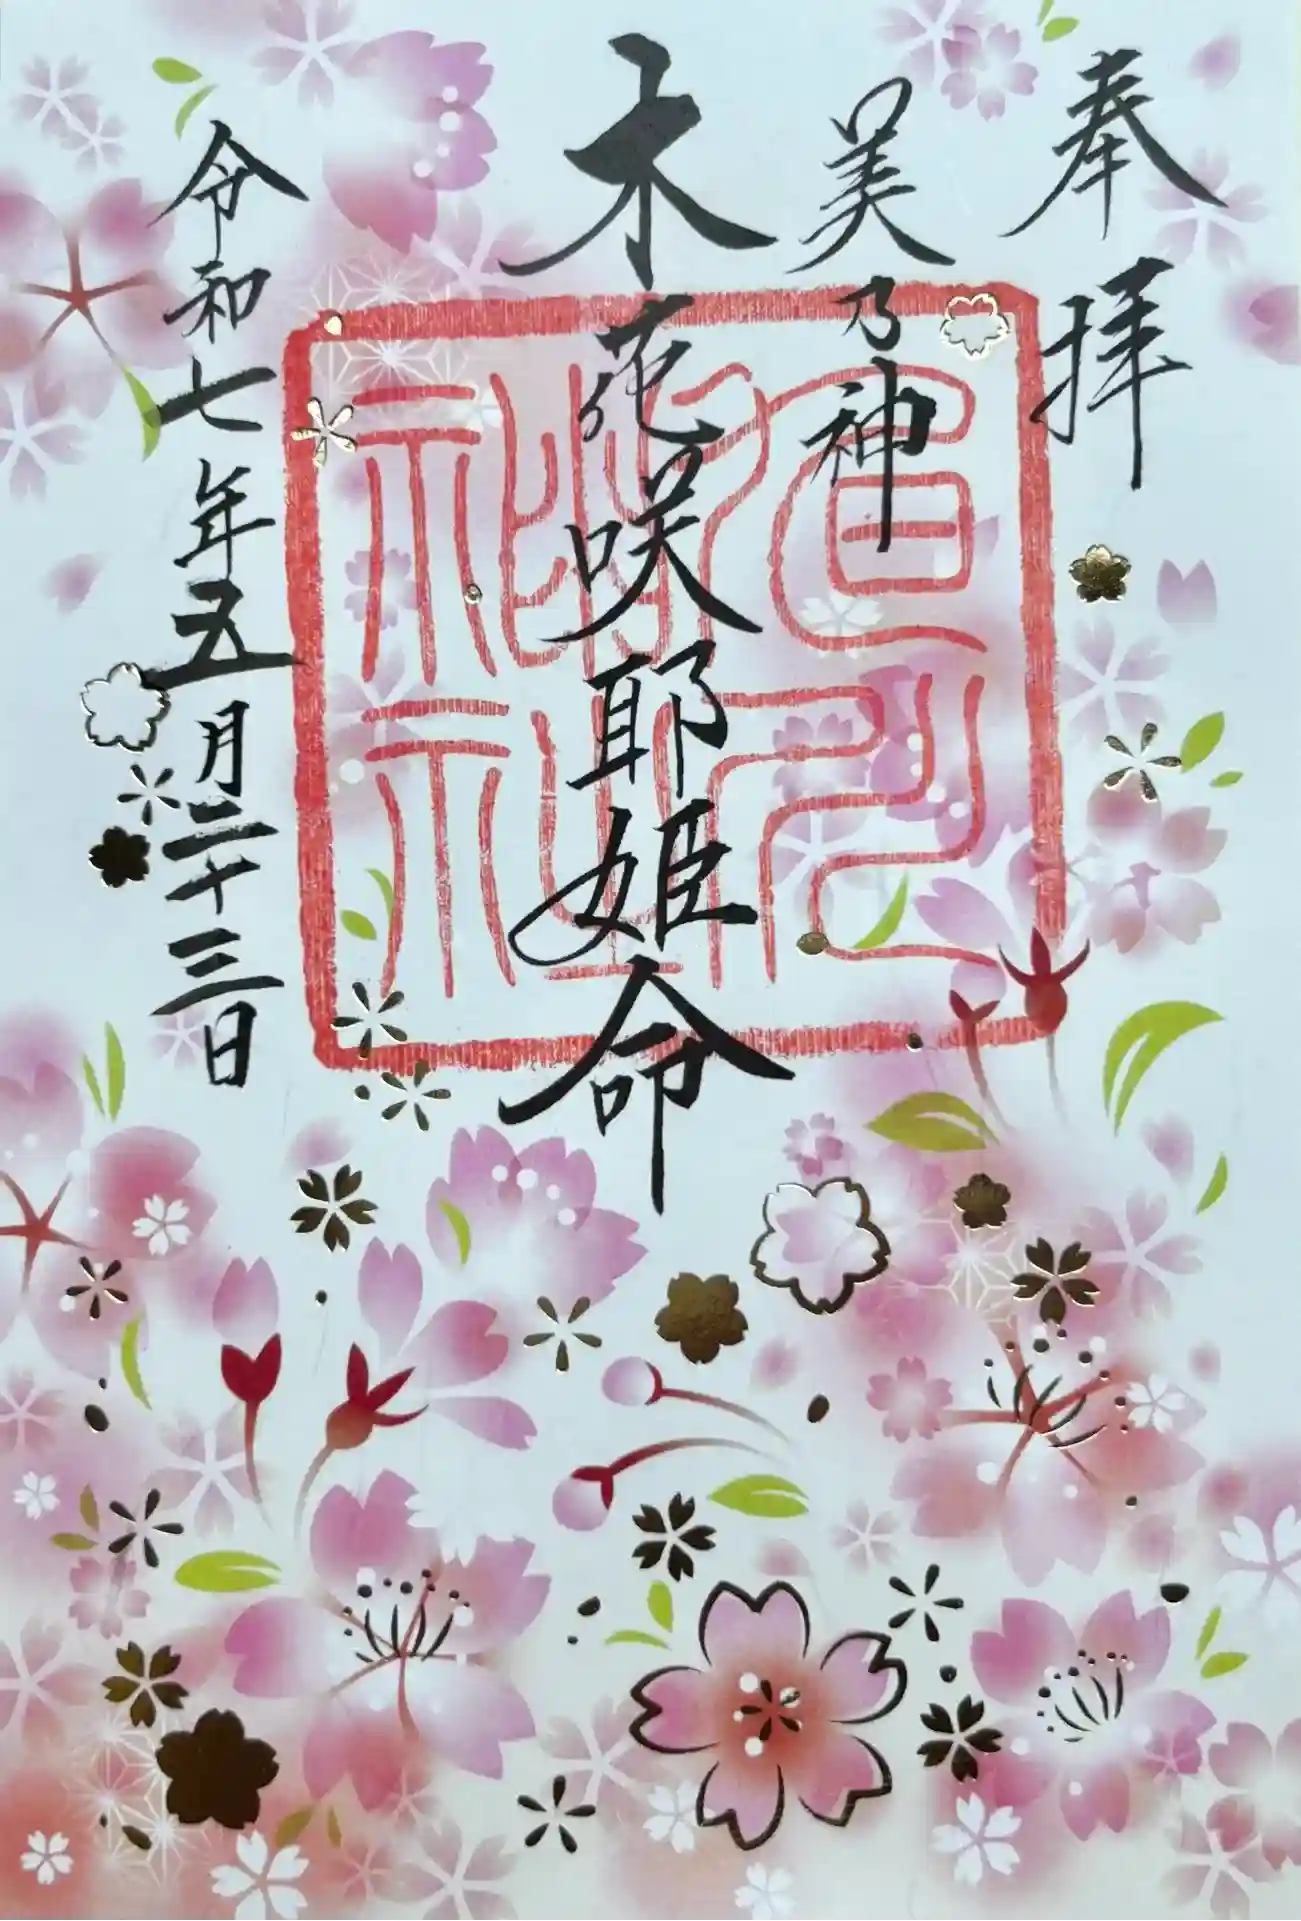 奉拝
美乃神
木花咲耶姫命
令和七年五月二十三日